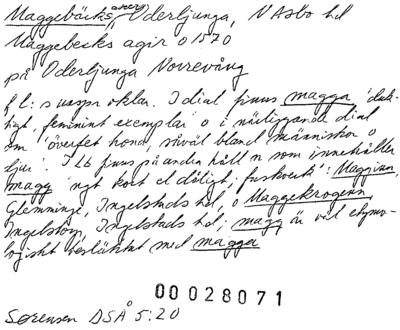 Maggebäcks aver, Oderljunga, N Åsbo hd
Maggebecks agir o 1570
på Oderljunga Norrevång
f l: s uappr oklar. I dial finns magga 'då-
ligt, feminint exemplar' o i närliggande dial
om 'överfet hona, såväl bland människor o
djur'. I Lb finns på andra håll n som innehåller
magg 'ngt kort el dåligt; fuskverk': Maggivan,
Glemminge, Ingelstads hd, o Maggekrogen,
Ingelstorp, Ingelstads hd; magg är väl etymo-
logiskt besläktat med magga
00028071
Sørensen DSÅ 5:20